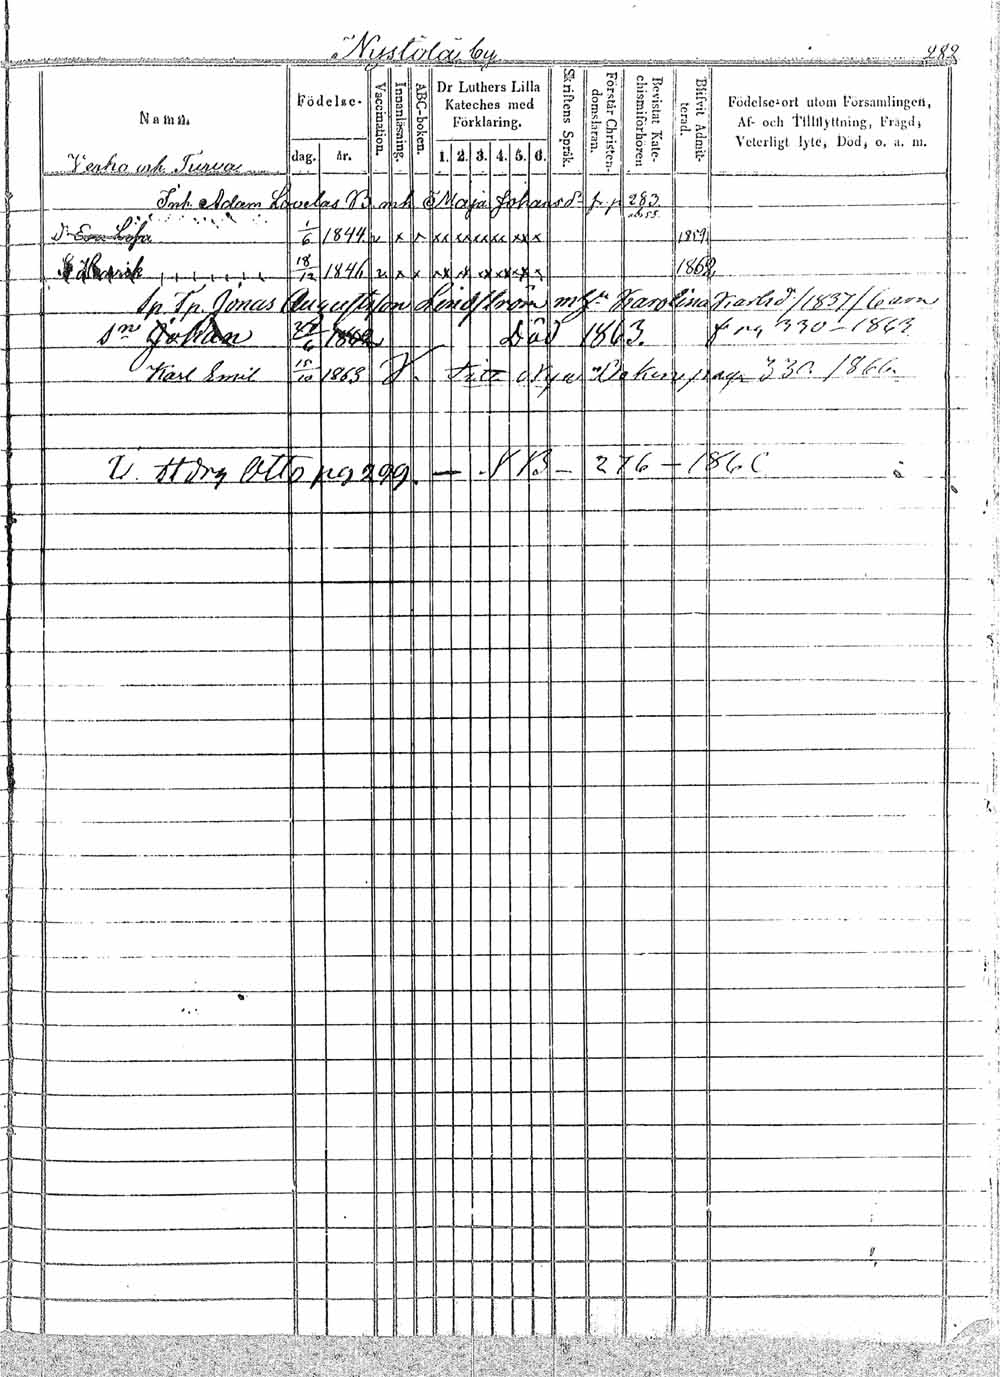 Nystölä by 282
Namn.
Födelse-
dag. år.
Vaccination.
Innanläsning.
ABC-boken.
Dr Luthers Lilla
Kateches med
Förklaring.
1. 2. 3. 4. 5. 6.
Skriftens Språk.
Förstår Christen-
domsläran.
Bevistat Kate-
chismiförhören
Blifvit Admit-
terad.
Födelse-ort utom Församlingen,
Af- och Tillflyttning, Frägd,
Veterligt lyte, Död, o. a. m.
Verho och Turva
Inh. Adam Lovelas B. m h Maja Johans d. 283
Lisa 1/6 1844 v x x xx xx xx xx xx x 1859
Henrik 18/12 1846 v x x xx xx x xx xx x 1862
Sp. Tp. Jonas Augustsson Lindström m h Karolina Karlsd. /1837/
Sn Johan 1862 Död 1863. 330 - 1863
Karl Emil 15/10 1863 V. Nya Boken pag 330 1866
Otto pg 299. — N B — 276 — 186